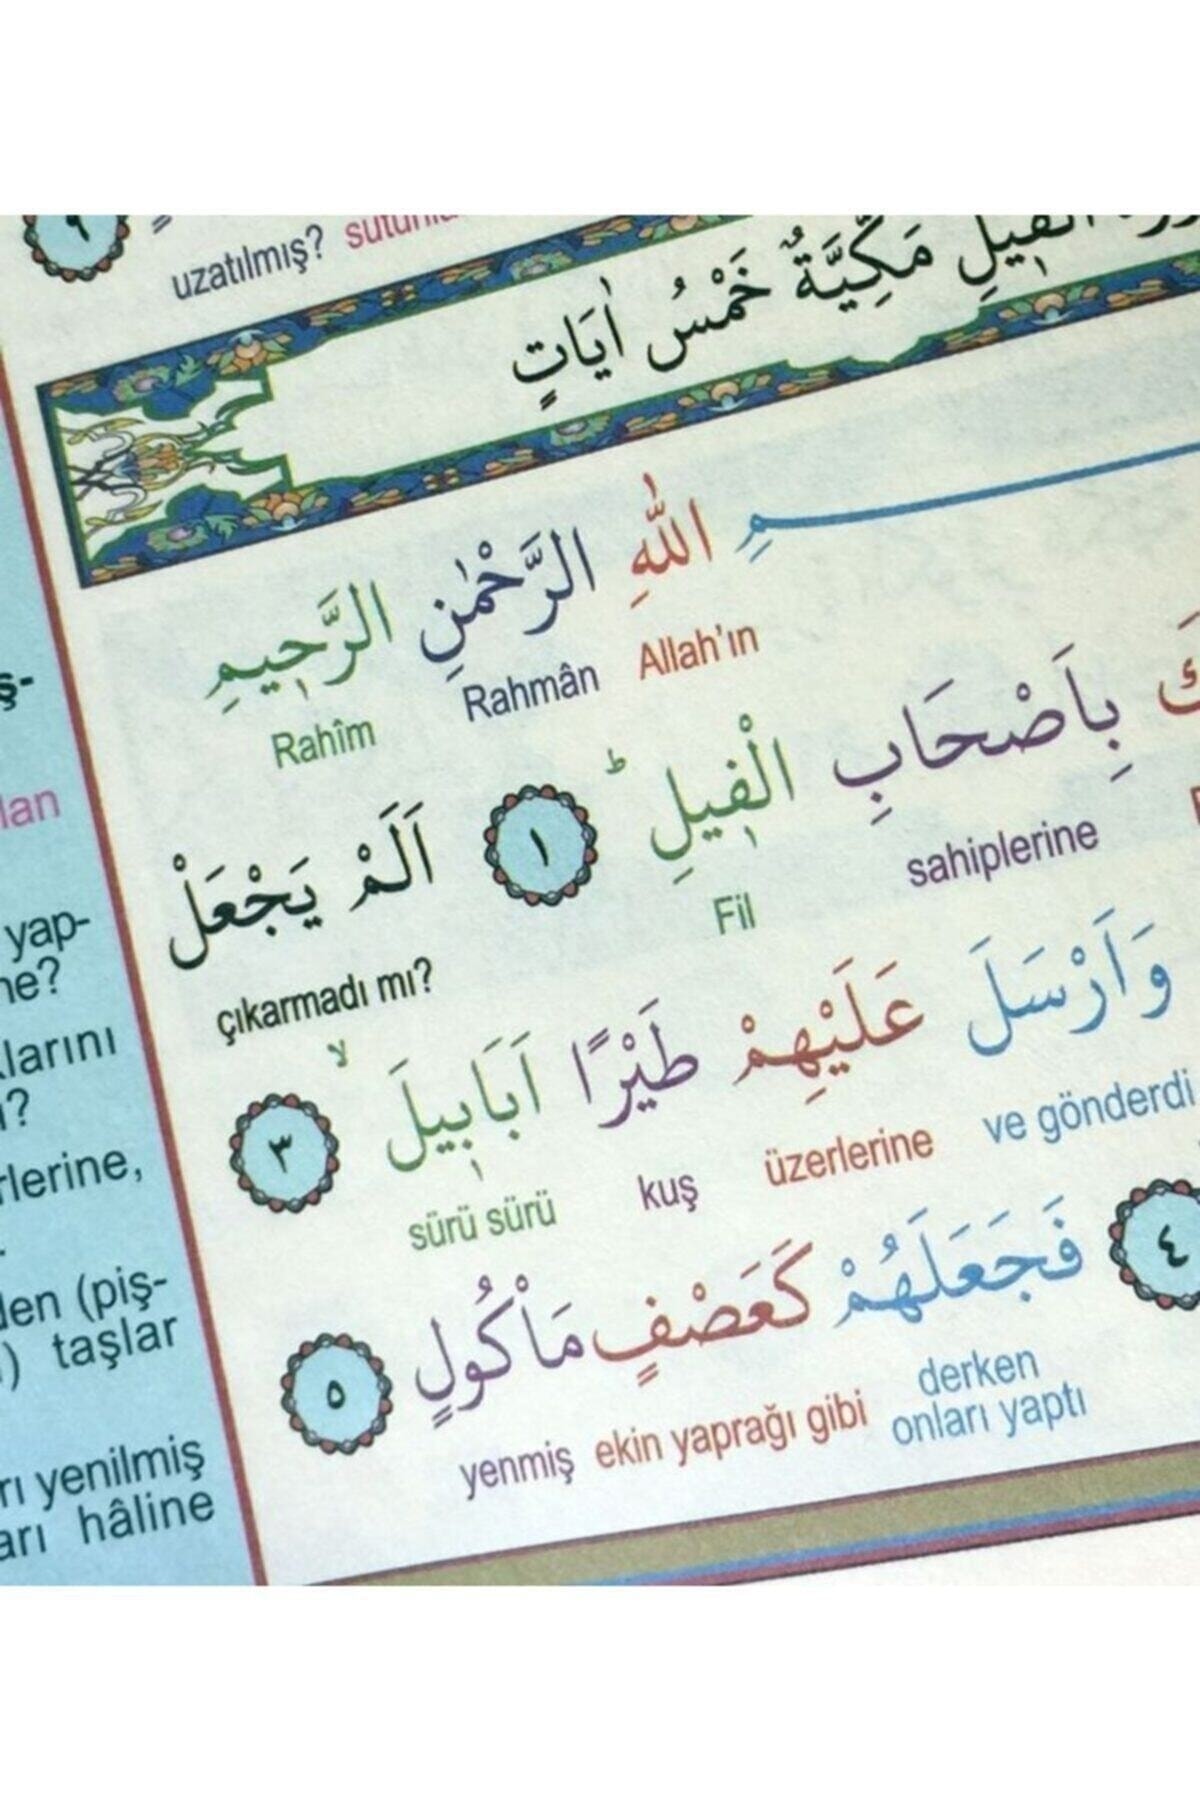 ٩
uzatılmış?
الْفٖيلِ مَكِّيَّةٌ خَمْسُ اٰيَاتٍ
مِ اللّٰهِ الرَّحْمٰنِ الرَّحٖيمِ
Allah'ın Rahmân Rahîm
كَ بِاَصْحَابِ الْفٖيلِ ط ١ اَلَمْ يَجْعَلْ
sahiplerine Fil çıkarmadı mı?
وَاَرْسَلَ عَلَيْهِمْ طَيْرًا اَبَابٖيلَ لا ٣
ve gönderdi üzerlerine kuş sürü sürü
٤ فَجَعَلَهُمْ كَعَصْفٍ مَاْكُولٍ ٥
derken
onları yaptı ekin yaprağı gibi yenmiş
ş-
lan
yap-
ne?
larını
?
rlerine,
den (piş-
) taşlar
rı yenilmiş
arı hâline